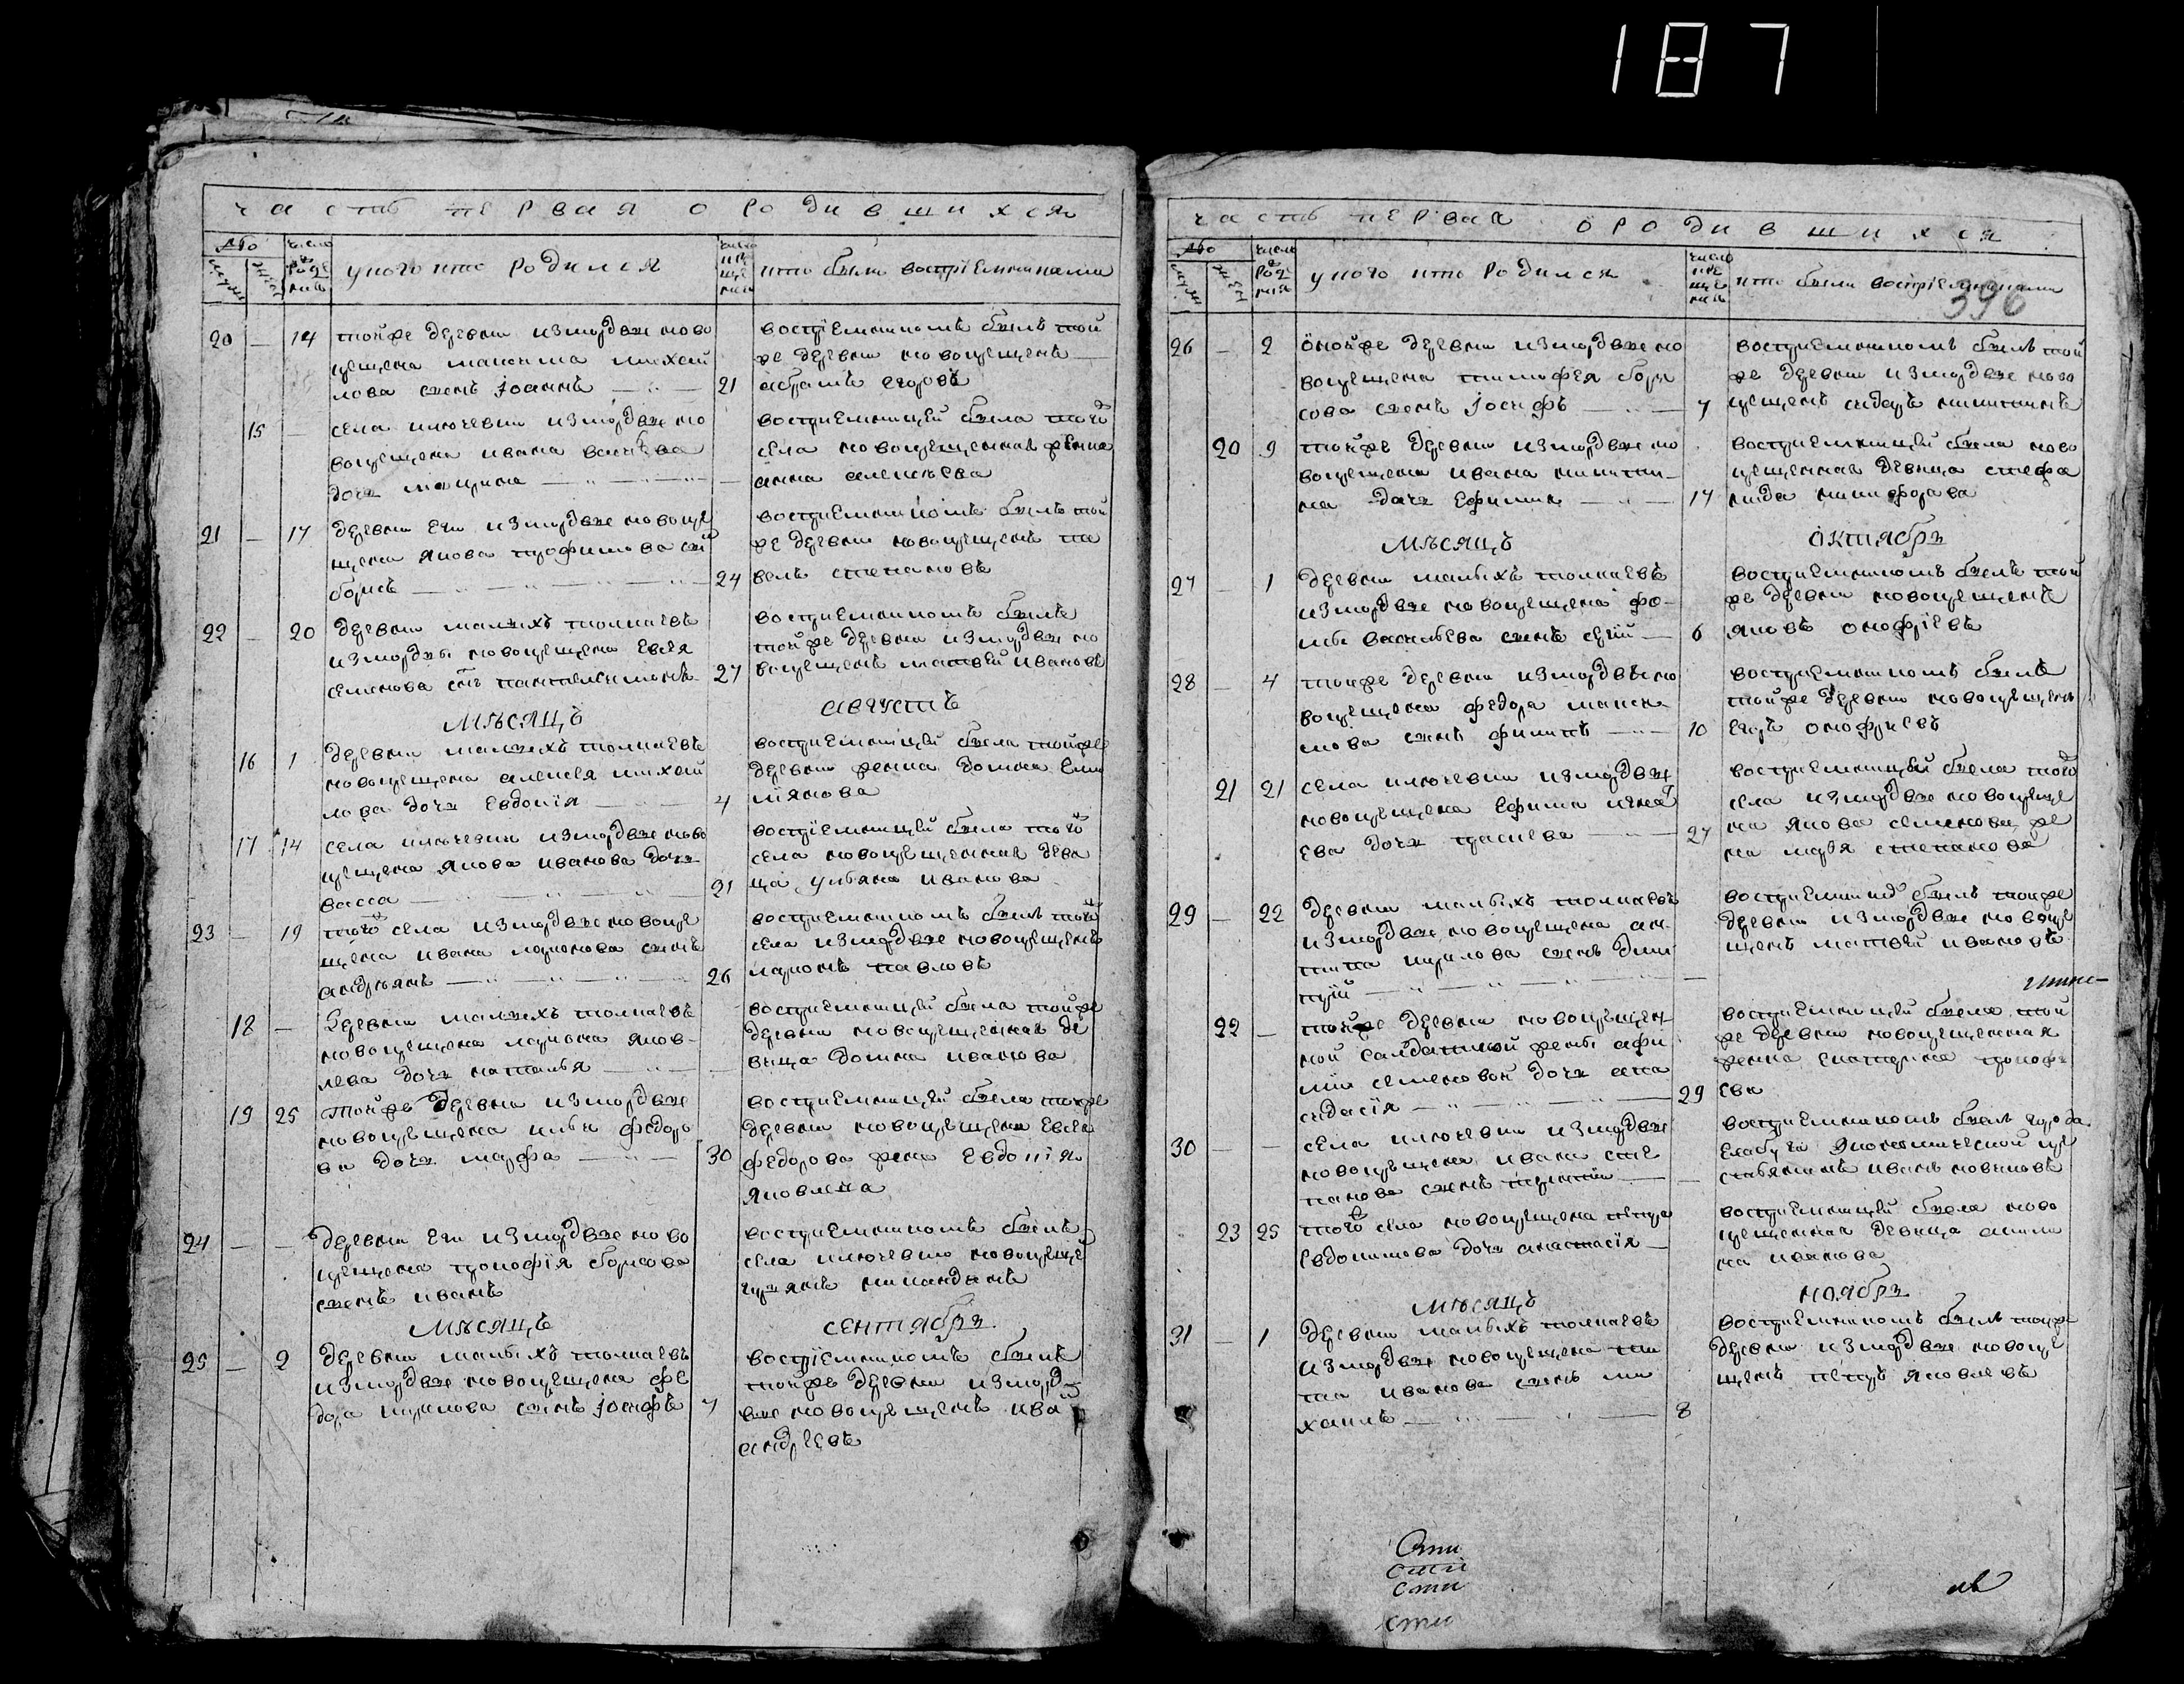 187
часть первая о родившихся
число роже ния
у кого кто родился
число кре ще ния
кто были восприемниками
20 — 14 тойже деревни измордвы ново
крещена максима михаи
лова сынъ Iоаннъ — 21
восприемникомъ былъ той
же деревни новокрещенъ —
абрамъ егоровъ
15 — села ключевки измордвы но
вокрещена ивана васильева
дочь марина — —
восприемницей была того
села новокрещенная женка
анна алексеева
21 — 17 деревни еги измордвы новокре
щена якова трофимова сынъ
борисъ — 24
восприемникомъ былъ той
же деревни новокрещенъ па
велъ степановъ
22 — 20 деревни малыхъ толкаевъ
измордвы новокрещена евсея
семенова сынъ пантелеимонъ 27
восприемникомъ былъ
тойже деревни измордвы но
вокрещенъ матвей ивановъ
мѣсяцъ августъ
16 1 деревни малыхъ толкаевъ
новокрещена алексея михаи
лова дочь Евдокiя — 4
восприемницей была тойже
деревни женка домна еми
лиянова
17 14 села ключевки измордвы ново
крещена якова иванова дочь
васса — 21
восприемницей была того
села новокрещенная деви
ца ульяна иванова
23 — 19 того села измордвы новокре
щена ивана ларионова сынъ
андреянъ — 26
восприемникомъ былъ того
села измордвы новокрещенъ
ларионъ павловъ
18 — деревни малыхъ толкаевъ
новокрещена лариона яков
лева дочь наталья — —
восприемницей была тойже
деревни новокрещенная де
вица домна иванова
19 25 тойже деревни измордвы
новокрещена ильи федоро
ва дочь марфа — 30
восприемницей была тойже
деревни новокрещена Евсея
федорова жена Евдокiя
яковлева
24 — — деревни еги измордвы ново
крещена прокофiя борисова
сынъ иванъ
восприемникомъ былъ
села ключевки новокреще
мѣсяцъ сентябрь
25 — 2 деревни малыхъ толкаевъ
измордвы новокрещена фе
дора кирилова сынъ Iосифъ 7
восприемникомъ былъ
тойже деревни измор
двы новокрещенъ ива
андреевъ
часть первая о родившихся
число роже ния
у кого кто родился
число кре ще ния
кто были восприемниками
396
26 — 2 онойже деревни измордвы но
вокрещена тимофея бори
сова сынъ Iосифъ — 7
восприемникомъ былъ той
же деревни измордвы ново
крещенъ сидоръ никитинъ
20 9 тойже деревни измордвы но
вокрещена ивана никити
на дочь Ефимия — 17
восприемницей была ново
крещенная девица стефа
нида никифорова
мѣсяцъ октябрь
27 1 деревни малыхъ толкаевъ
измордвы новокрещена фо
мы васильева сынъ сергiй — 6
восприемникомъ былъ той
же деревни новокрещенъ
яковъ онофрiевъ
28 — 4 тойже деревни измордвы но
вокрещена федора макси
мова сынъ филипъ — 10
восприемникомъ былъ
тойже деревни новокрещенъ
егоръ онофриевъ
21 21 села ключевки измордвы
новокрещена Ефима игнатъ
ева дочь — 27
восприемницей была того
села измордвы новокреще
на якова семенова же
на марья степанова
29 — 22 деревни малыхъ толкаевъ
измордвы новокрещена ан
типа кирилова сынъ дми
трiй — —
восприемникъ былъ тойже
деревни измордвы новокре
щенъ матвей ивановъ
22 — тойже деревни новокрещен
ной салдатской жены афи
мiи семеновой дочь ана
стасiя — 29
восприемницей была той
же деревни новокрещенная
женка екатерина прокофь
ева
30 — села ключевки измордвы
новокрещена ивана сте
панова сынъ терентiи — —
восприемникомъ былъ города
стьянинъ иванъ новиковъ
23 25 того села новокрещена петра
Евдокимова дочь анастасiя —
восприемницей была ново
крещенная девица акили
на иванова
мѣсяцъ ноябрь
31 — 1 деревни малыхъ толкаевъ
измордвы новокрещена
иванова сынъ ми
хаилъ — 8
восприемникомъ былъ тойже
деревни измордвы новокре
щенъ петръ яковлевъ